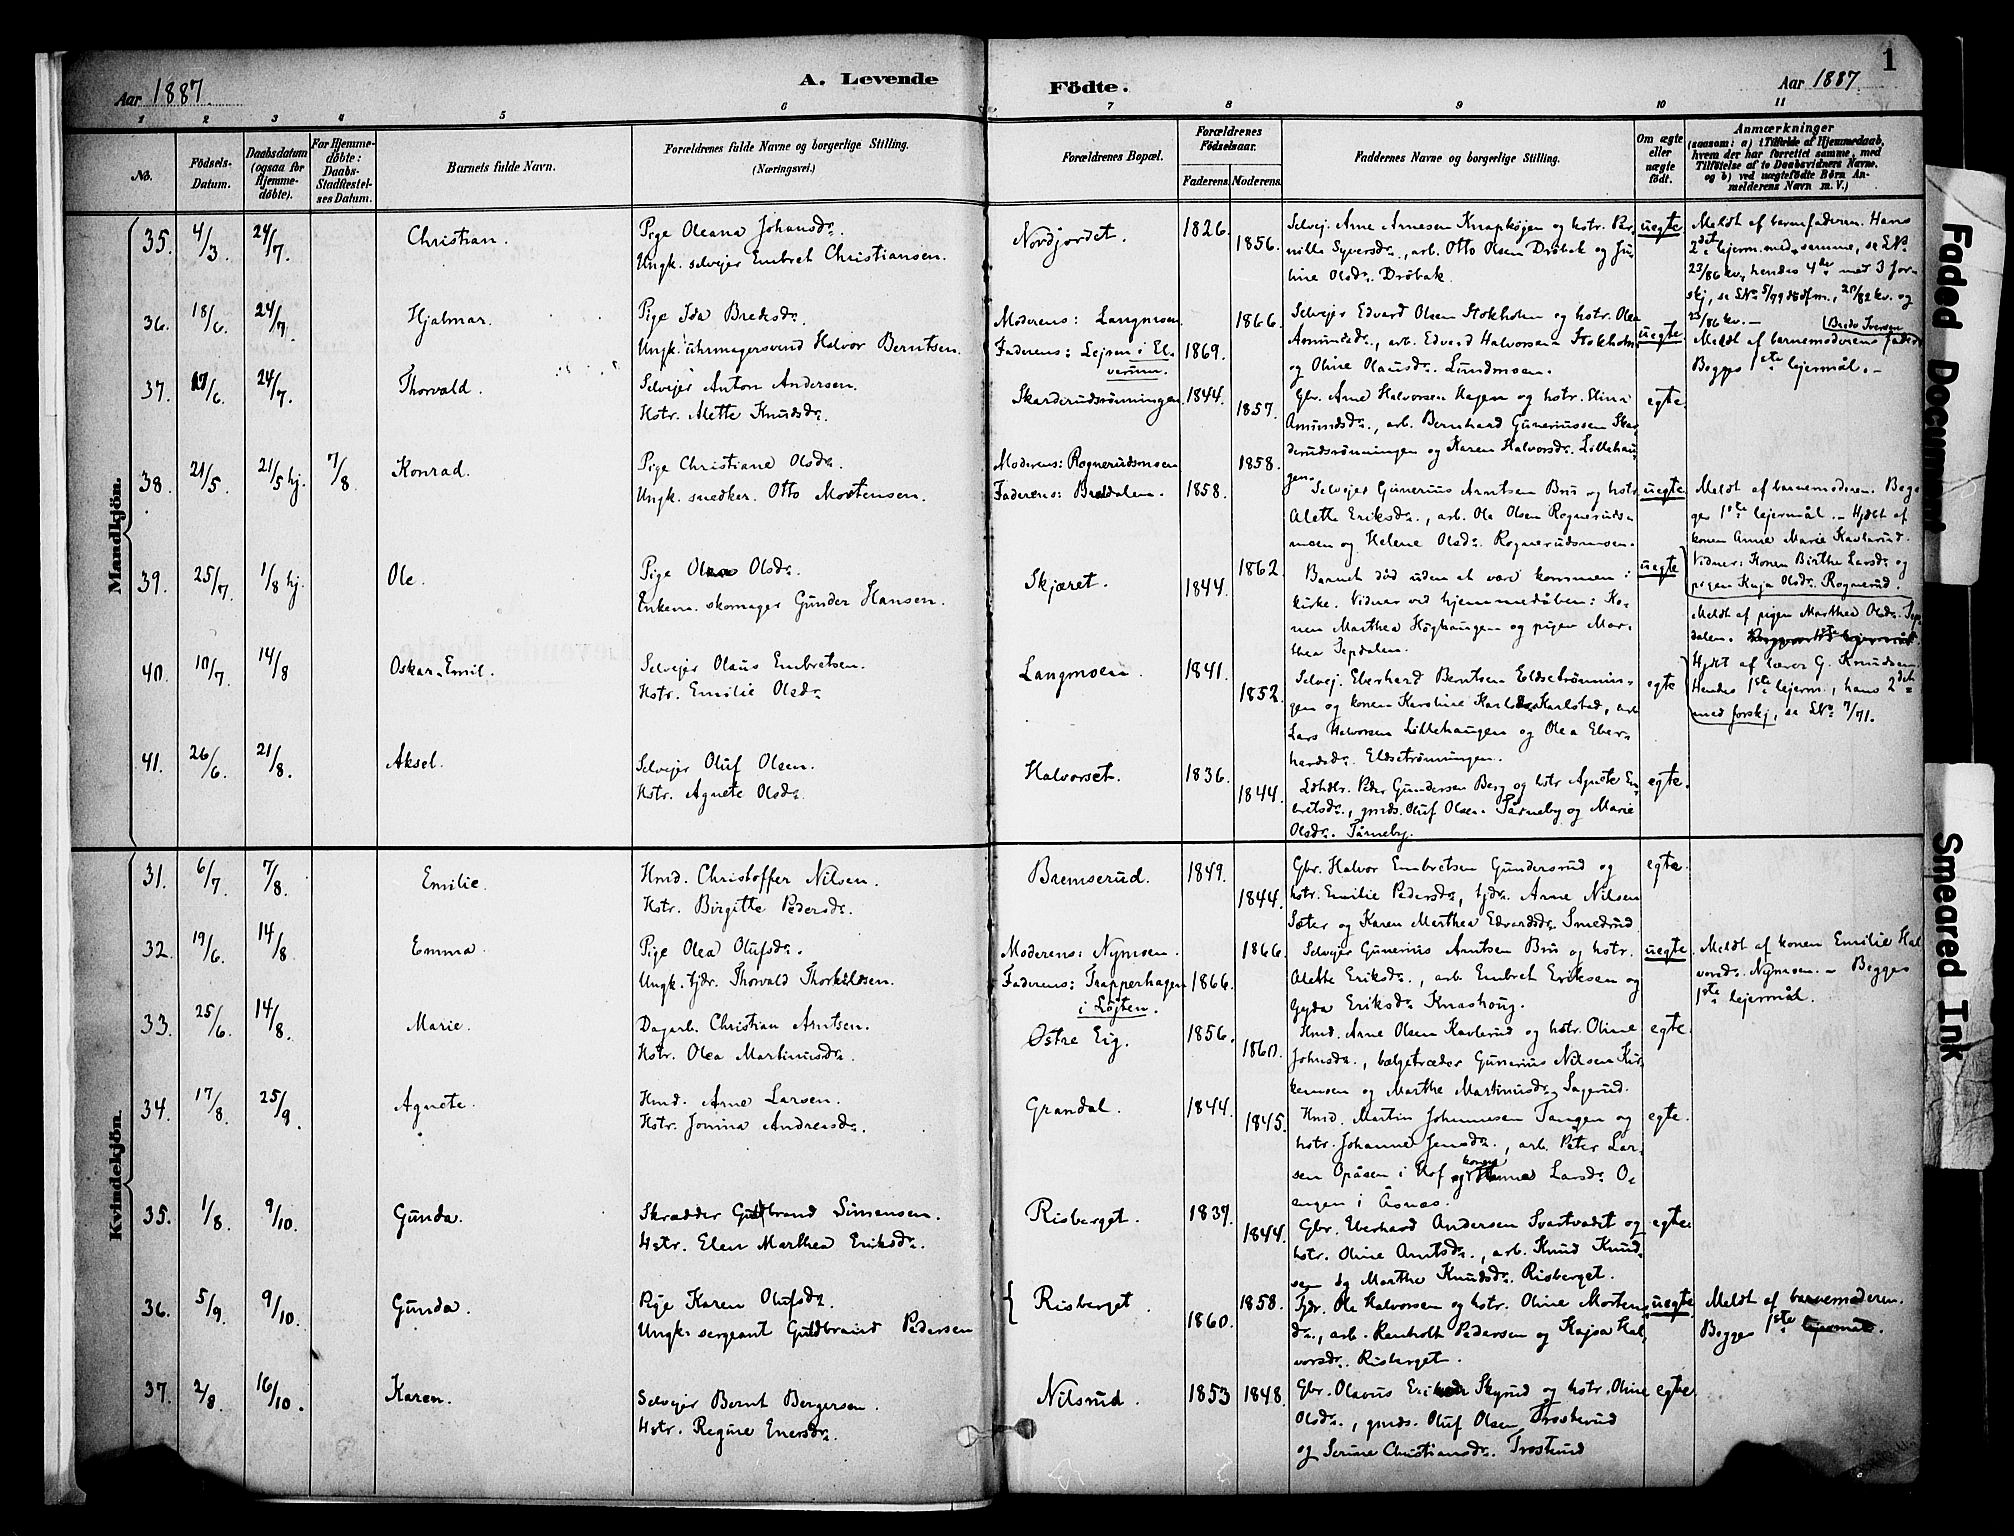 Aar 1887
A. Levende
Födte.
Aar 1887
1
1 2 3 4 5 6 7 8 9 10 11
No.
Födsels-Datum.
Daabsdatum (ogsaa for Hjemmedöbte).
For Hjemmedöbte: Daabs-Stadfæstelses Datum.
Barnets fulde Navn.
Forældrenes fulde Navne og borgerlige Stilling. (Næringsvei.)
Forældrenes Bopæl.
Forældrenes Födselsaar.
Faderens. Moderens.
Faddernes Navne og borgerlige Stilling.
Om ægte eller uægte födt.
Anmærkninger
(saasom: a) i Tilfælde af Hjemmedaab, hvem der har forrettet samme, med Tilföielse af to Daabsvidners Navne, og b) ved uægtefödte Börn Anmelderens Navn m. V.)
Mandkjön.
35. 4/3 24/7. Christian.
Pige Oleana Johansdr.
Ungk. selvejer Embret Christiansen.
Nordjordet. 1826. 1856.
Selvej. Arne Arnesen Knapkøjen og hstr. Per-
nille Syversdr., arb. Otto Olsen Drøbak og Ju-
line Olsdr. Drøbak.
uegte
Meldt af barnefaderen. Hans
2det lejerm. med samme, se LNo
23/86 kv., hendes 4de med 3 for-
skj, se LNo 5/79 , 20/82 kv. og
23/86 kv.
36. 18/6. 24/7. Hjalmar.
Pige Ida Bredesdr.
Ungk. uhrmagersvend Halvor Berntsen.
Moderens: Langmoen.
Faderens: Lejren i El-
verum.
1866. 1869.
Selvejer Edvard Olsen Stokholm og hstr. Olea
Asmundsdr., arb. Edvard Halvorsen Stokholm
og Oline Olausdr. Lundmoen.
uegte.
Bredo Iversen
Meldt af barnemoderens fader
Begges 1ste lejermål.
37. 17/6. 24/7. Thorvald.
Selvejer Anton Andersen.
Hstr. Alette Knudsdr.
Skarderudsrønningen. 1844. 1857.
Gbr. Arne Halvorsen Hagen og hstr. Elina
Amundsdr., arb. Bernhard Guneriussen Skar-
derudsrønningen og Karen Halvorsdr. Lillehau-
gen.
egte.
38. 21/5. 21/5 hj. 7/8. Konrad.
Pige Christiane Olsdr.
Ungk. snedker Otto Mortensen.
Moderens: Rognerudsmoen
Faderens: Bredalen.
1858. 1858.
Selvejer Gunerius Arntsen Bru og hstr.
Alette Eriksdr., arb. Ole Olsen Rogneruds-
moen og Helene Olsdr. Rognerudsmoen.
uegte.
Meldt af barnemoderen. Beg-
ges 1ste lejermål. Hjdøt af
konen Anna Marie Kavlerud.
Vidner: Konen Birthe Larsdr. og
pigen Kaja Olsdr. Rognerud.
39. 25/7. 1/8 hj. Ole.
Pige Olsdr.
Enkem. skomager Gunder Hansen.
Skjæret. 1844. 1862.
Barnet død uden at være kommen i
kirke. Vidner ved hjemmedåben: Ko-
nen Marthea Høghaugen og pigen Mar-
thea Sepdalen.
uegte
Meldt af pigen Marthea Olsdr. Sep-
dalen.
Hjdt af lærer G. Knudsen.
Hendes 1ste lejerm., hans 2det
med forskj, se LNo 7/71.
40. 10/7. 14/8 Oskar Emil.
Selvejer Olaus Embretsen.
Hstr. Emilie Olsdr.
Langmoen. 1841. 1852.
Selvej. Eberhard Berntsen Eldsetrønnin-
gen og konen Karoline Karlsdr. Karlstad, arb.
Lars Halvorsen Lillehaugen og Olea Eber-
hardsdr. Eldsetrønningen.
egte
41. 26/6. 21/8. Aksel.
Selvejer Oluf Olsen.
Hstr. Agnete Olsdr.
Halvorset. 1836. 1844.
Peder Gundersen Berg og hstr Agnete Em-
bretsdr., gmds. Oluf Olsen Tårneby og Marie
Olsdr. Tårneby.
egte.
Kvindekjön.
31. 6/7. 7/8. Emilie.
Hmd. Christoffer Nilsen.
Hstr. Birgitte Pedersdr.
Bremserud. 1849. 1844.
Gbr. Halvor Embretsen Gundersrud og
hstr. Emilie Pedersdr., tjdr. Arne Nilsen
Sæter og Karen Marthea Edvardsdr. Smedrud
egte.
32. 19/6. 14/8. Emma.
Pige Olea Olufsdr.
Ungk. tjdr. Thorvald Thorkildsen.
Moderens: Nymoen.
Faderens: Trapperhagen
i Løjten.
1866. 1866.
Selvejer Gunerius Arntsen Bru og hstr.
Alette Eriksdr., arb. Embret Eriksen og
Gyda Eriksdr. Knashoug.
uegte.
Meldt af konen Emilie Hal-
vorsdr. Nymoen. Begges
1ste lejermål.
33. 25/6. 14/8. Marie.
Dagarb. Christian Arntsen.
Hstr. Olea Martinusdr.
Østre Eig. 1856. 1860.
Hmd. Arne Olsen Kavlerud og hstr. Oline
Johnsdr., bælgetræder Gunerius Nilsen Kir-
kemoen og Marthe Martinusdr. Sagerud.
egte.
34. 17/8. 25/9. Agnete.
Hmd. Arne Larsen.
Hstr. Jonina Andreasdr.
Grandal. 1844. 1845.
Hmd. Martin Johannesen Tangen og
hstr. Johanne Jensdr., arb. Peter Lar-
sen Opåsen i Hof og konen Larsdr. O-
angen i Åsnæs.
egte.
35. 1/8. 9/10. Gunda.
Skrædder Guldbrand Simensen.
Hstr. Elen Marthea Eriksdr.
Risberget. 1837. 1844.
Gbr. Eberhard Andersen Svartvadet og
hstr. Oline Arntsdr., arb. Knud Knud-
sen og Marthe Knudsdr. Risberget.
egte
36. 5/9. 9/10. Gunda.
Pige Karen Olufsdr.
Ungk. sergeant Guldbrand Pedersen
Risberget. 1860. 1858.
Tjdr. Ole Halvorsen og hstr. Oline Mortens-
dr., arb. Renholt Pedersen og Kajsa Hal-
vorsdr. Risberget.
uegte
Meldt af barnemoderen.
Begges 1ste lejermål.
37. 2/8. 16/10. Karen.
Selvejer Bernt Bergersen.
Hstr. Regine Enersdr.
Nilsrud. 1853 1848.
Gbr. Olavus Skyrud og hstr. Oline
Olsdr., gmds. Oluf Olsen Trosterud
og Serine Christiansdr. Trosterud
egte.
Faded Document
Smeared Ink